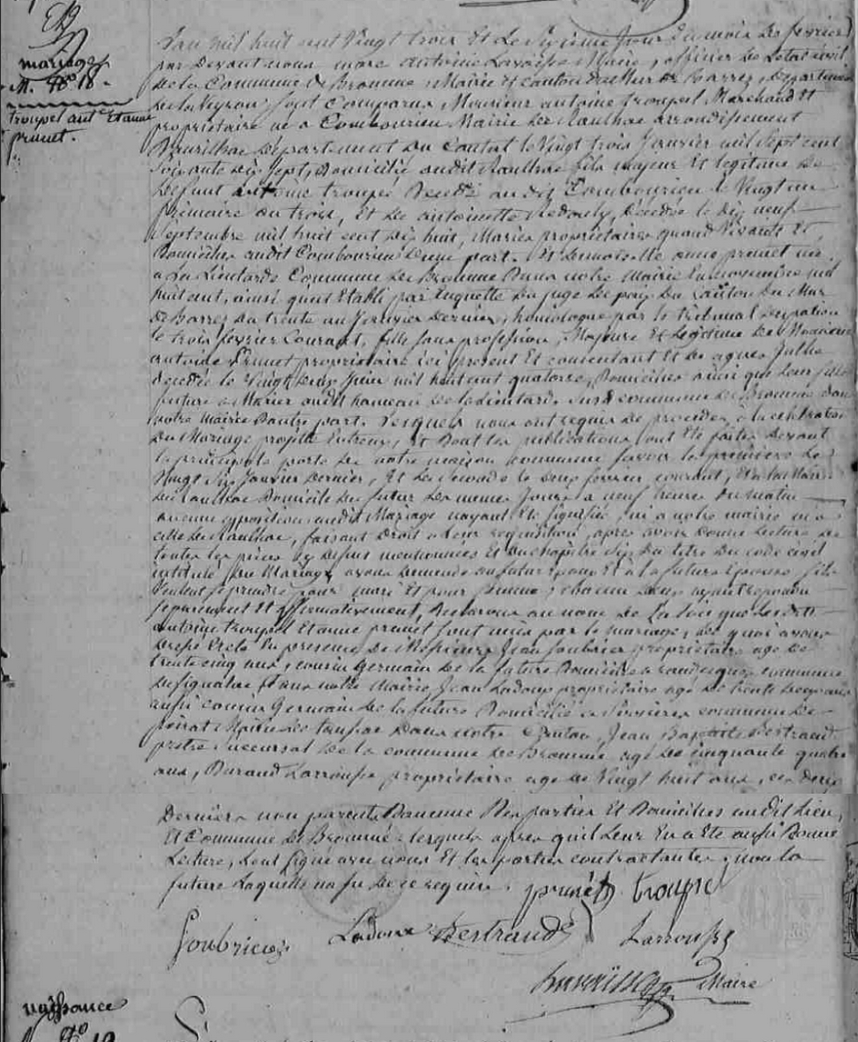 mariage
N. 18.
troupel ant.e Et anne
prunet.
L'an mil huit cent Vingt trois Et Le Sixieme jour du mois de fevrier
par Devant nous marc antoine Maire, officier De L'etat civil
De la Commune de Brommes, Mairie Et canton du Mur de Barrez, Departement
De Laveyron, sont Comparus, Monsieur antoine troupel Marchand Et
propriétaire né a Combourieu Mairie De Raulhac arrondissement
Daurilhac Département Du Cantal le Vingt trois Janvier mil Sept cent
Soixante Dix Sept, Domicilié audit Raulhac fils majeur Et legitime De
Défunt antoine troupel Décédé au dit Combourieu le Vingt un
frimaire an trois, Et De antoinette Décédée le Dix neuf
Septembre mil huit cent Dix huit, Mariés propriétaires quand Vivants Et
Domiciliés audit Combourieu D'une part. Et Demoiselle anne prunet née
a La Lieutarde Commune De Bromme Dans notre Mairie En mil
huit cent, ainsi qu'est Etabli par Enquette Du juge De paix Du Canton Du Mur
De Barrez Du trente un Janvier Dernier, homologuée par le tribunal
le trois fevrier Courant, fille sans profession, Majeure Et legitime De Monsieur
antoine Prunet propriétaire ici présent Et consentant Et De agnes Julhe
décédée le Vingt Deux Juin mil huit cent quatorze, Domiciliés ainsi que leur fille
future a Marier audit hameau De La Lieutarde Susd. commune De Brommes Dans
notre Mairie D'autre part. Lesquels nous ont requis De proceder a la celebration
Du Mariage projetté Entr'eux, Et Dont les publications ont Eté faites Devant
la principale porte De notre maison Commune savoir la premiere Le
Vingt Six Janvier Dernier, Et la Seconde le Deux fevrier courant, Et a la Mairie
De Raulhac Domicile Du futur Les memes Jours a neuf heures Du matin
aucune opposition audit Mariage n'ayant Eté signifiée, ni a notre mairie ni a
celle De Raulhac, faisant Droit a leur requisition, apres avoir Donné Lecture De
toutes les pieces cy Dessus mentionnées Et Du chapitre Six Du titre Du code civil
intitulé Du Mariage, avons Demandé au futur Epoux Et a la future Epouse s'ils
Veulent se prendre pour mari Et pour femme, chacun D'eux ayant repondu
separement Et affirmativement, Declarons au nom De La Loi que Lesdits
antoine troupel Et anne prunet sont unis par le mariage, De quoi avons
Dressé acte En présence De Messieurs Jean Soubrier propriétaire agé De
trente cinq ans, cousin Germain De la future Domicilié a commune
De Dans notre Mairie, Jean Ladoux propriétaire agé De trente ans
aussi cousin Germain De la future Domicilié a commune De
Mairie De taussac Dans notre Canton, Jean Baptiste Bertrand
pretre Succursal De la commune De Bromme agé De cinquante quatre
ans, Durand Larroussе propriétaire agé De Vingt huit ans, ces Deux
Derniers non parents D'aucune Des parties Et Domiciliés audit Lieu,
Et Commune De Bromme: lesquels apres qu'il Leur En a Eté aussi Donné
Lecture, l'ont signé avec nous Et les parties contractantes, non la
future Laquelle n'a su De ce requise. prunet troupel
Soubrier Ladoux Bertrand Larrousse
Maire
naissance